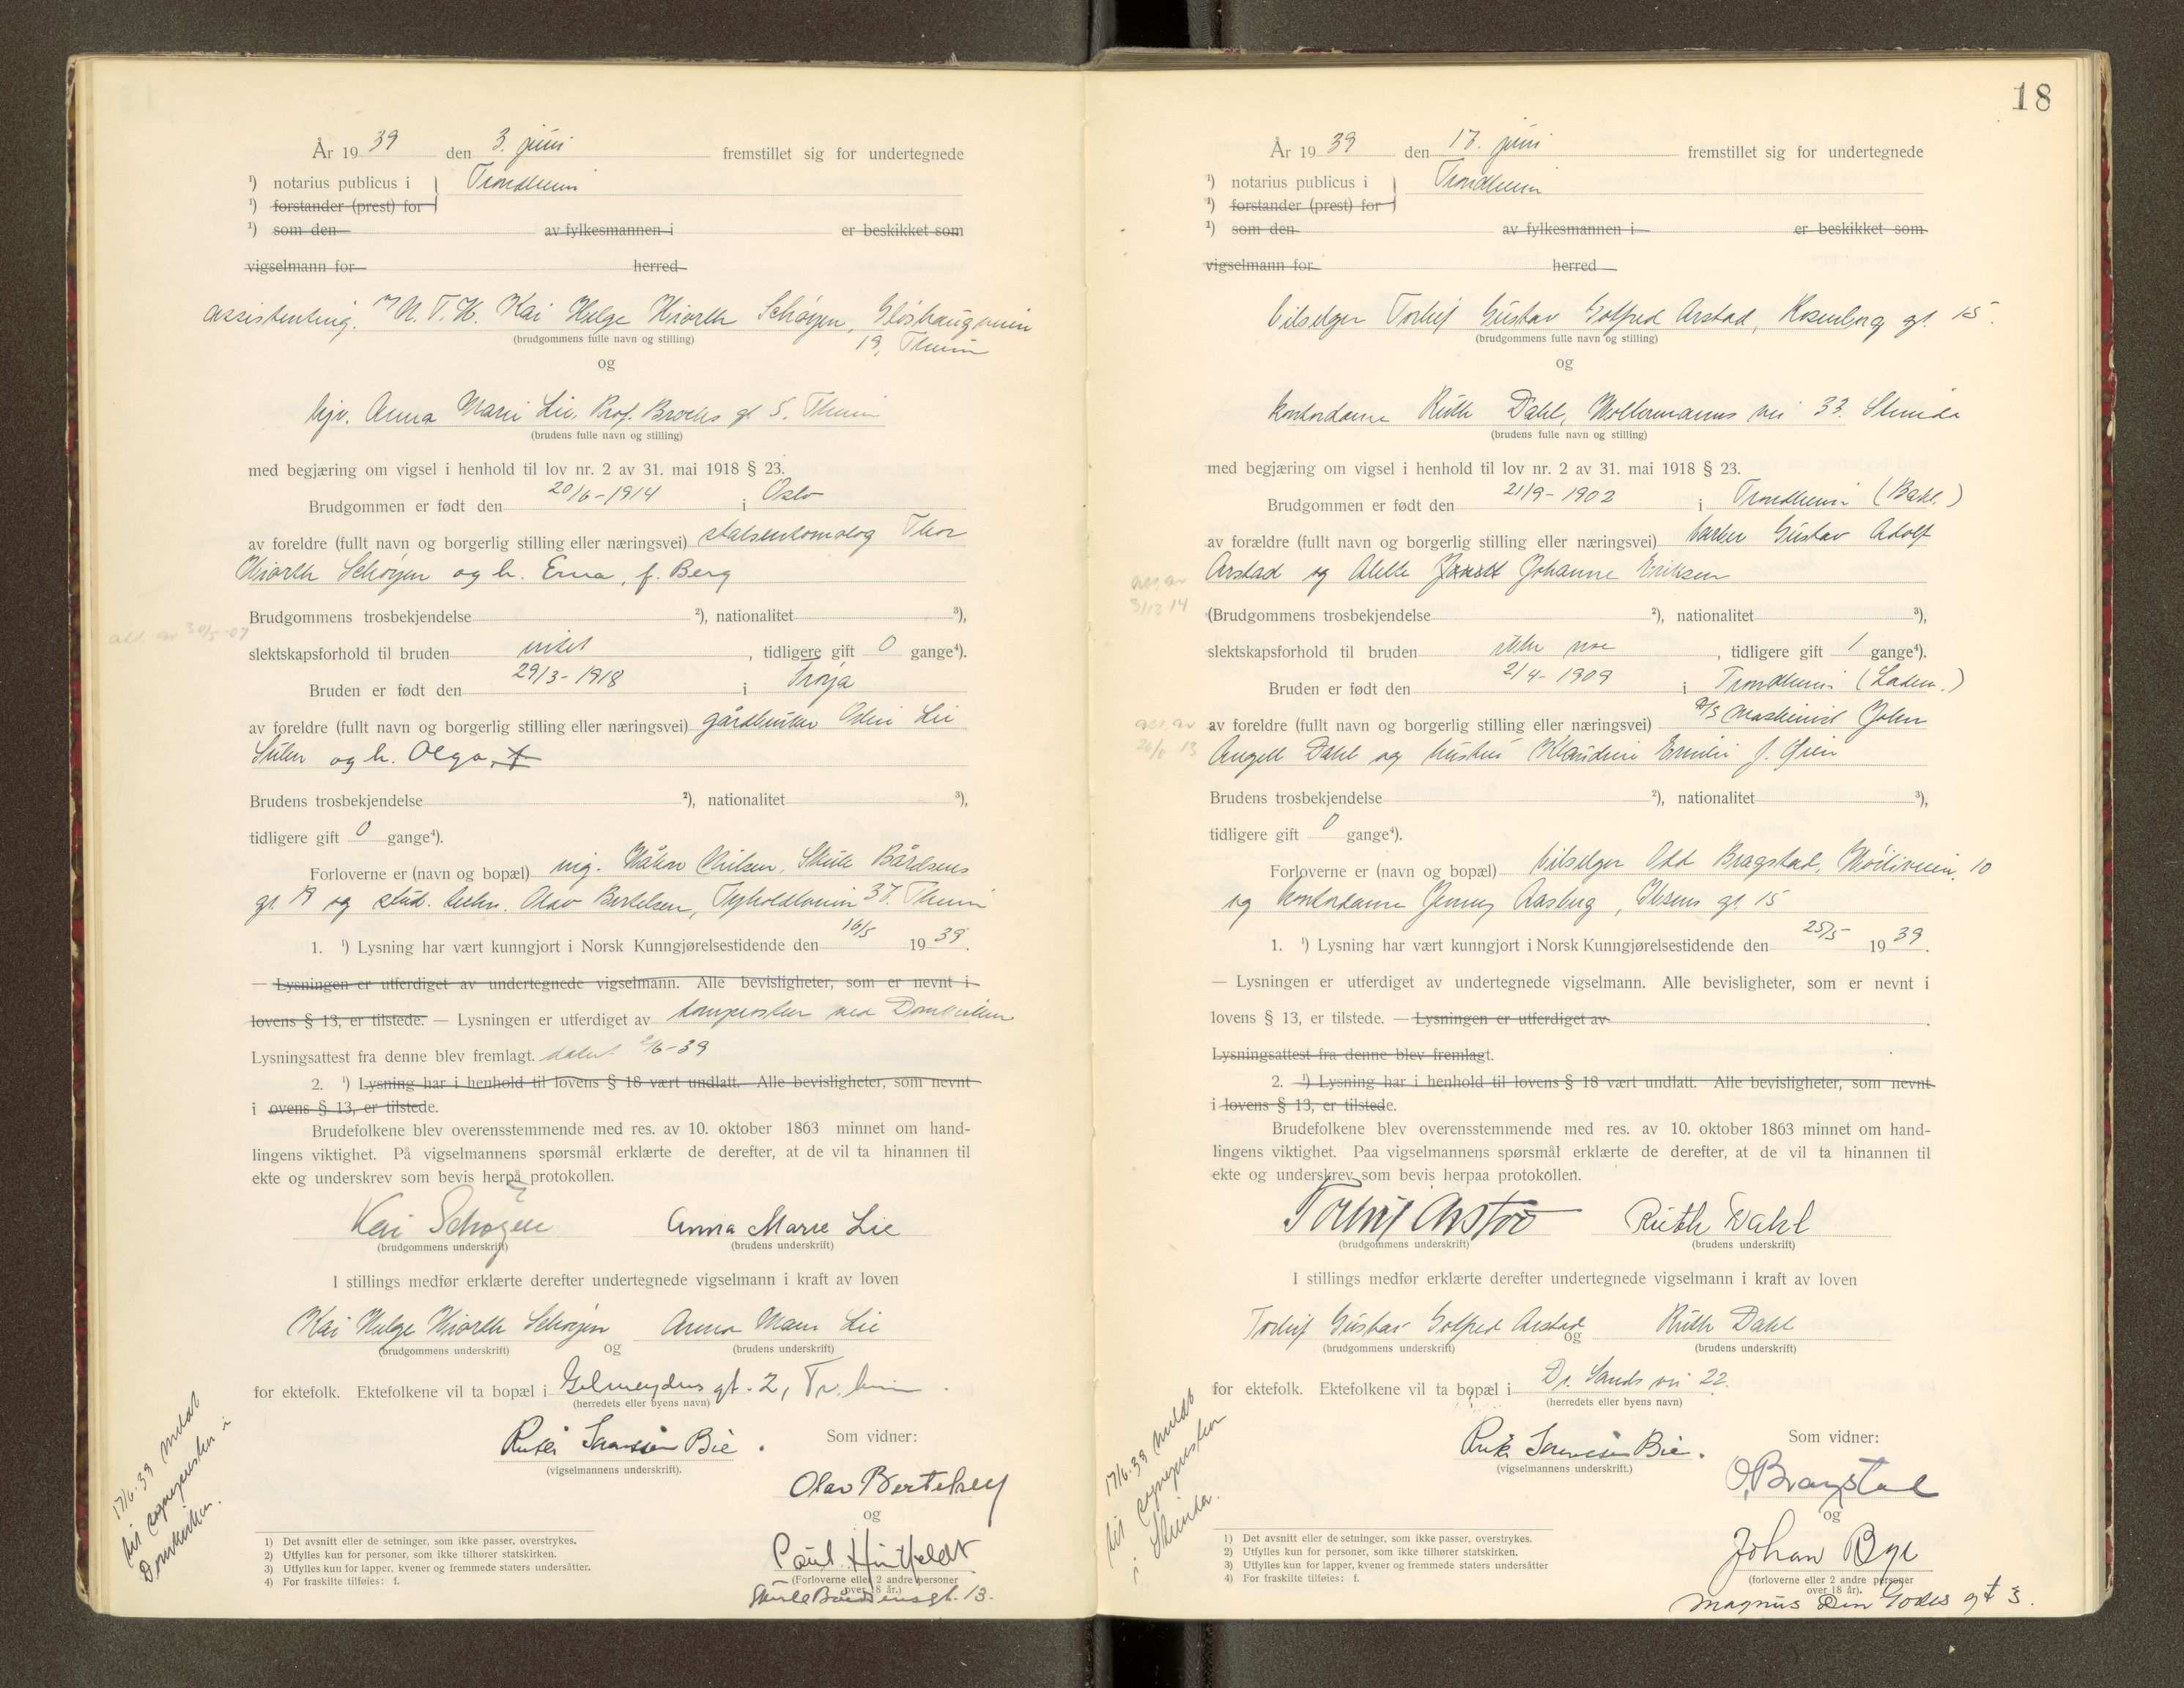 År 19 39 den 3. juni fremstillet sig for undertegnede
¹) notarius publicus i Trondheim
¹) forstander (prest) for
¹) som den av fylkesmannen i er beskikket som
vigselmann for herred
assistenting. v/ N. T. H. Kai Helge Hiorth Schøyen, Gløshaugveien
(brudgommens fulle navn og stilling)
19, Theim
og
Anna Marie Lie, Prof. Brochs gt 5. Theim
(brudens fulle navn og stilling)
med begjæring om vigsel i henhold til lov nr. 2 av 31. mai 1918 § 23.
Brudgommen er født den 20/6-1914 i Oslo
av foreldre (fullt navn og borgerlig stilling eller næringsvei) statsentomolog Thor
Hiorth Schøyen og h. Erna, f. Berg
Brudgommens trosbekjendelse ²), nationalitet ³),
30/5-07
slektskapsforhold til bruden intet , tidligere gift 0 gange⁴).
Bruden er født den 29/3-1918 i Frøya
av foreldre (fullt navn og borgerlig stilling eller næringsvei) gårdbruker Odin Lie
og h. Olga, f
Brudens trosbekjendelse ²), nationalitet ³),
tidligere gift 0 gange⁴).
Forloverne er (navn og bopæl) ing. Håkon Nilsen, Skule Bårdsens
gt. og stud. techn. Olav Bertelsen, Tyholdtveien 37. Theim
1. ¹) Lysning har vært kunngjort i Norsk Kunngjørelsestidende den 16/5 19 39.
— Lysningen er utferdiget av undertegnede vigselmann. Alle bevisligheter, som er nevnt i
lovens § 13, er tilstede. — Lysningen er utferdiget av sogneprsten ved Domkirken
Lysningsattest fra denne blev fremlagt. datert 2/6-39
2. ¹) Lysning har i henhold til lovens § 18 vært undlatt. Alle bevisligheter, som nevnt
i ovens § 13, er tilstede.
Brudefolkene blev overensstemmende med res. av 10. oktober 1863 minnet om hand-
lingens viktighet. På vigselmannens spørsmål erklærte de derefter, at de vil ta hinannen til
ekte og underskrev som bevis herpå protokollen.
Kai Schøyen Anna Marie Lie
(brudgommens underskrift) (brudens underskrift)
I stillings medfør erklærte derefter undertegnede vigselmann i kraft av loven
Kai Helge Hiorth Schøyen og Anna Marie Lie
(brudgommens underskrift) (brudens underskrift)
for ektefolk. Ektefolkene vil ta bopæl i gt. 2, Tr.heim.
(herredets eller byens navn)
Bie.
(vigselmannens underskrift).
Som vidner:
Olav Bertelsen
og
Paul
(Forloverne eller 2 andre personer
over 18 år.)
Skule Bårdsensgt. 13.
17/6-39 meldt
til sogneprsten i
Domkirken.
1) Det avsnitt eller de setninger, som ikke passer, overstrykes.
2) Utfylles kun for personer, som ikke tilhører statskirken.
3) Utfylles kun for lapper, kvener og fremmede staters undersåtter.
4) For fraskilte tilføies: f.
18
År 19 39 den 17. juni fremstillet sig for undertegnede
¹) notarius publicus i Trondheim
¹) forstander (prest) for
¹) som den av fylkesmannen i er beskikket som
vigselmann for herred
bilselger Torleif Gustav Gotfred Arstad, Rosenborg gt. 15.
(brudgommens fulle navn og stilling)
og
kontordame Ruth Dahl, Wollermanns vei 33. Strinda
(brudens fulle navn og stilling)
med begjæring om vigsel i henhold til lov nr. 2 av 31. mai 1918 § 23.
Brudgommen er født den 21/9-1902 i Trondheim (Bakl.)
av forældre (fullt navn og borgerlig stilling eller næringsvei) Gustav Adolf
Arstad og Alette Johanne Eriksen
3/12 14
(Brudgommens trosbekjendelse ²), nationalitet ³),
slektskapsforhold til bruden ikke noe , tidligere gift 1 gange⁴).
Bruden er født den 2/4-1909 i Trondheim (Ladem.)
av foreldre (fullt navn og borgerlig stilling eller næringsvei) maskinist John
Angell Dahl og hustru Klaudine Emilie f. Øien
Brudens trosbekjendelse ²), nationalitet ³),
tidligere gift 0 gange⁴).
Forloverne er (navn og bopæl) bilselger Odd Bragstad, 10
og kontordame Jenny Aasberg, Ibsens gt. 15
1. ¹) Lysning har vært kunngjort i Norsk Kunngjørelsestidende den 25/5 19 39.
— Lysningen er utferdiget av undertegnede vigselmann. Alle bevisligheter, som er nevnt i
lovens § 13, er tilstede. — Lysningen er utferdiget av .
Lysningsattest fra denne blev fremlagt.
2. ¹) Lysning har i henhold til lovens § 18 vært undlatt. Alle bevisligheter, som nevnt
i lovens § 13, er tilstede.
Brudefolkene blev overensstemmende med res. av 10. oktober 1863 minnet om hand-
lingens viktighet. Paa vigselmannens spørsmål erklærte de derefter, at de vil ta hinannen til
ekte og underskrev som bevis herpaa protokollen.
Torleif Arstad Ruth Dahl
(brudgommens underskrift) (brudens underskrift)
I stillings medfør erklærte derefter undertegnede vigselmann i kraft av loven
Torleif Gustav Gotfred Arstad og Ruth Dahl
(brudgommens underskrift) (brudens underskrift)
for ektefolk. Ektefolkene vil ta bopæl i Dr. Sands vei 22.
(herredets eller byens navn)
Bie.
(vigselmannens underskrift.)
Som vidner:
O. Bragstad
og
Johan Bye
(forloverne eller 2 andre personer
over 18 år).
Magnus Den Godes gt 3.
17/6-39 meldt
til sogneprsten
i Strinda.
1) Det avsnitt eller de setninger, som ikke passer, overstrykes.
2) Utfylles kun for personer, som ikke tilhører statskirken.
3) Utfylles kun for lapper, kvener og fremmede staters undersåtter
4) For fraskilte tilføies: f.